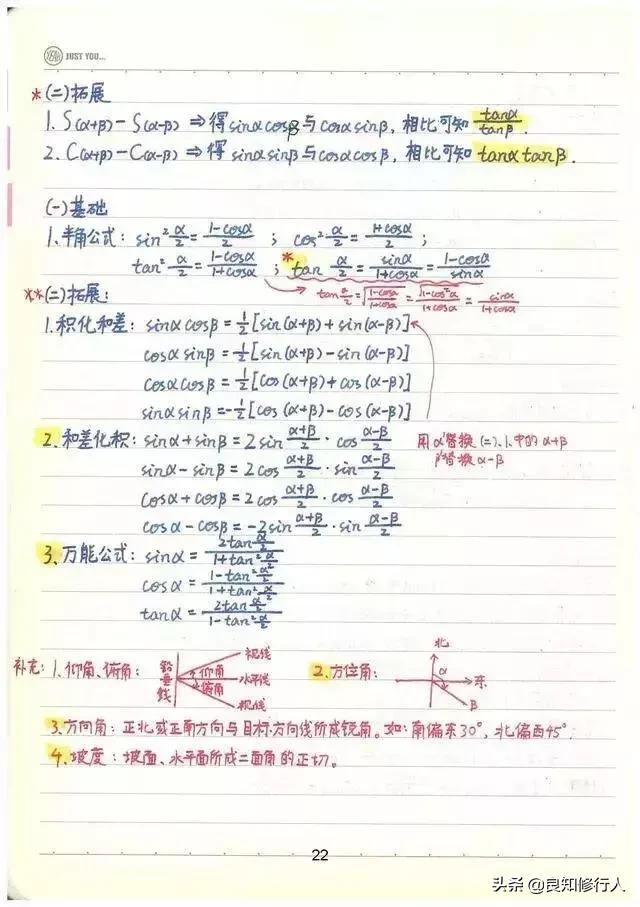 YEAH JUST YOU...
*(二)拓展
1. S(α+β)-S(α-β) ⇒ 得sinαcosβ与cosαsinβ, 相比可知 tanα/tanβ.
2. C(α+β)-C(α-β) ⇒ 得 sinαsinβ与cosαcosβ, 相比可知 tanαtanβ.
(一)基础
1.半角公式: sin²α/2=(1-cosα)/2 ; cos²α/2=(1+cosα)/2 ;
tan²α/2=(1-cosα)/(1+cosα) ; *tan α/2=sinα/(1+cosα)=(1-cosα)/sinα
**(二)拓展:
tanα/2=√((1-cosα)/(1+cosα))=√(1-cos²α)/(1+cosα)=sinα/(1+cosα)
1.积化和差: sinαcosβ=½[sin(α+β)+sin(α-β)]
cosαsinβ=½[sin(α+β)-sin(α-β)]
cosαcosβ=½[cos(α+β)+cos(α-β)]
sinαsinβ=-½[cos(α+β)-cos(α-β)]
2.和差化积: sinα+sinβ=2sin(α+β)/2·cos(α-β)/2
用α'替换(二)、1.中的α+β
sinα-sinβ=2cos(α+β)/2·sin(α-β)/2
β'替换α-β
cosα+cosβ=2cos(α+β)/2·cos(α-β)/2
cosα-cosβ=-2sin(α+β)/2·sin(α-β)/2
3.万能公式: sinα=2tan(α/2)/(1+tan²(α/2))
cosα=(1-tan²(α/2))/(1+tan²(α/2))
tanα=2tan(α/2)/(1-tan²(α/2))
补充: 1.仰角、俯角:
铅垂线
视线
仰角
水平线
俯角
视线
2.方位角:
北
α
东
B
3.方向角: 正北或正南方向与目标方向线所成锐角。如: 南偏东30°, 北偏西45°.
4.坡度: 坡面、水平面所成二面角的正切。
22
头条 @良知修行人